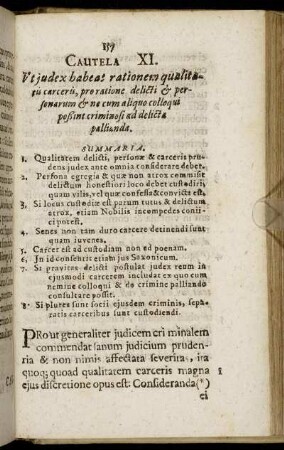 139
CAUTELA XI.
Vt judex habeat rationem qualita-
tis carceris, pro ratione delicti & per-
sonarum & ne cum aliquo colloqui
possint criminosi ad delicta
pallianda.
SUMMARIA.
1. Qualitatem delicti, personæ & carceris pru-
dens judex ante omnia considerare debet.
2. Persona egregia & quæ non atrox commisit
delictum honestiori loco debet custodiri,
quam vilis, vel quæ confessa & convicta est.
3. Si locus custodiæ est parum tutus & delictum
atrox, etiam Nobilis in compedes conii-
ci potest.
4. Senes non tam duro carcere detinendi sunt
quam juvenes.
5. Carcer est ad custodiam non ad poenam.
6. In id consentit etiam jus Saxonicum.
7. Si gravitas delicti postulat judex reum in
ejusmodi carcerem includat ex quo cum
nemine colloqui & de crimine palliando
consultare possit.
8. Si plures sunt socii ejusdem criminis, sepa-
ratis carceribus sunt custodiendi.
PRout generaliter judicem criminalem
commendat sanum judicium pruden-
ria & non nimis affectata severitas, ita
quoq; quoad qualitatem carceris magna 1
ejus discretione opus est: Consideranda (*)
ei